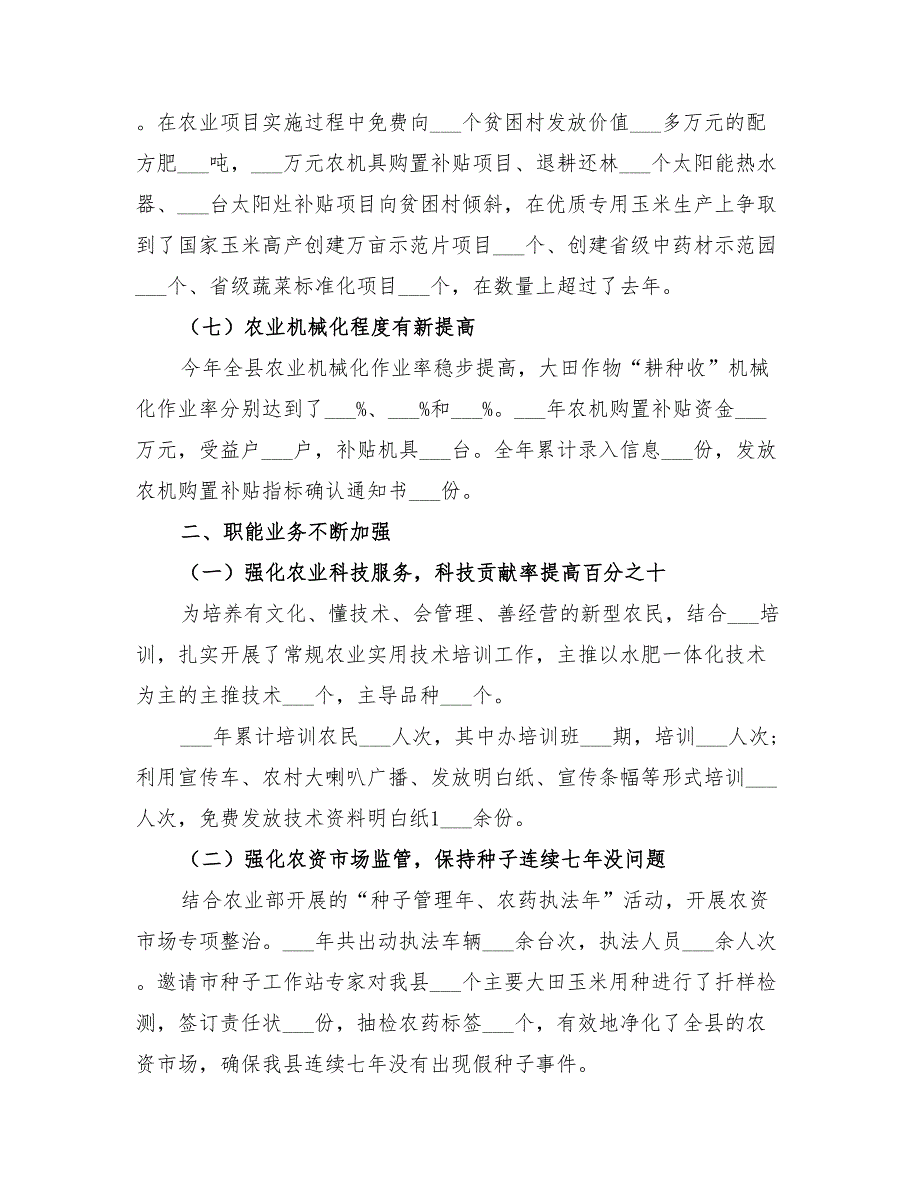 。在农业项目实施过程中免费向___个贫困村发放价值___多万元的配
方肥___吨，___万元农机具购置补贴项目、退耕还林___个太阳能热水
器、___台太阳灶补贴项目向贫困村倾斜，在优质专用玉米生产上争取
到了国家玉米高产创建万亩示范片项目___个、创建省级中药材示范园
___个、省级蔬菜标准化项目___个，在数量上超过了去年。
（七）农业机械化程度有新提高
今年全县农业机械化作业率稳步提高，大田作物“耕种收”机械
化作业率分别达到了___%、___%和___%。___年农机购置补贴资金___
万元，受益户___户，补贴机具___台。全年累计录入信息___份，发放
农机购置补贴指标确认通知书___份。
二、职能业务不断加强
（一）强化农业科技服务，科技贡献率提高百分之十
为培养有文化、懂技术、会管理、善经营的新型农民，结合___培
训，扎实开展了常规农业实用技术培训工作，主推以水肥一体化技术
为主的主推技术___个，主导品种___个。
___年累计培训农民___人次，其中办培训班___期，培训___人次;
利用宣传车、农村大喇叭广播、发放明白纸、宣传条幅等形式培训___
人次，免费发放技术资料明白纸1___余份。
（二）强化农资市场监管，保持种子连续七年没问题
结合农业部开展的“种子管理年、农药执法年”活动，开展农资
市场专项整治。___年共出动执法车辆___余台次，执法人员___余人次
。邀请市种子工作站专家对我县___个主要大田玉米用种进行了扦样检
测，签订责任状___份，抽检农药标签___个，有效地净化了全县的农
资市场，确保我县连续七年没有出现假种子事件。